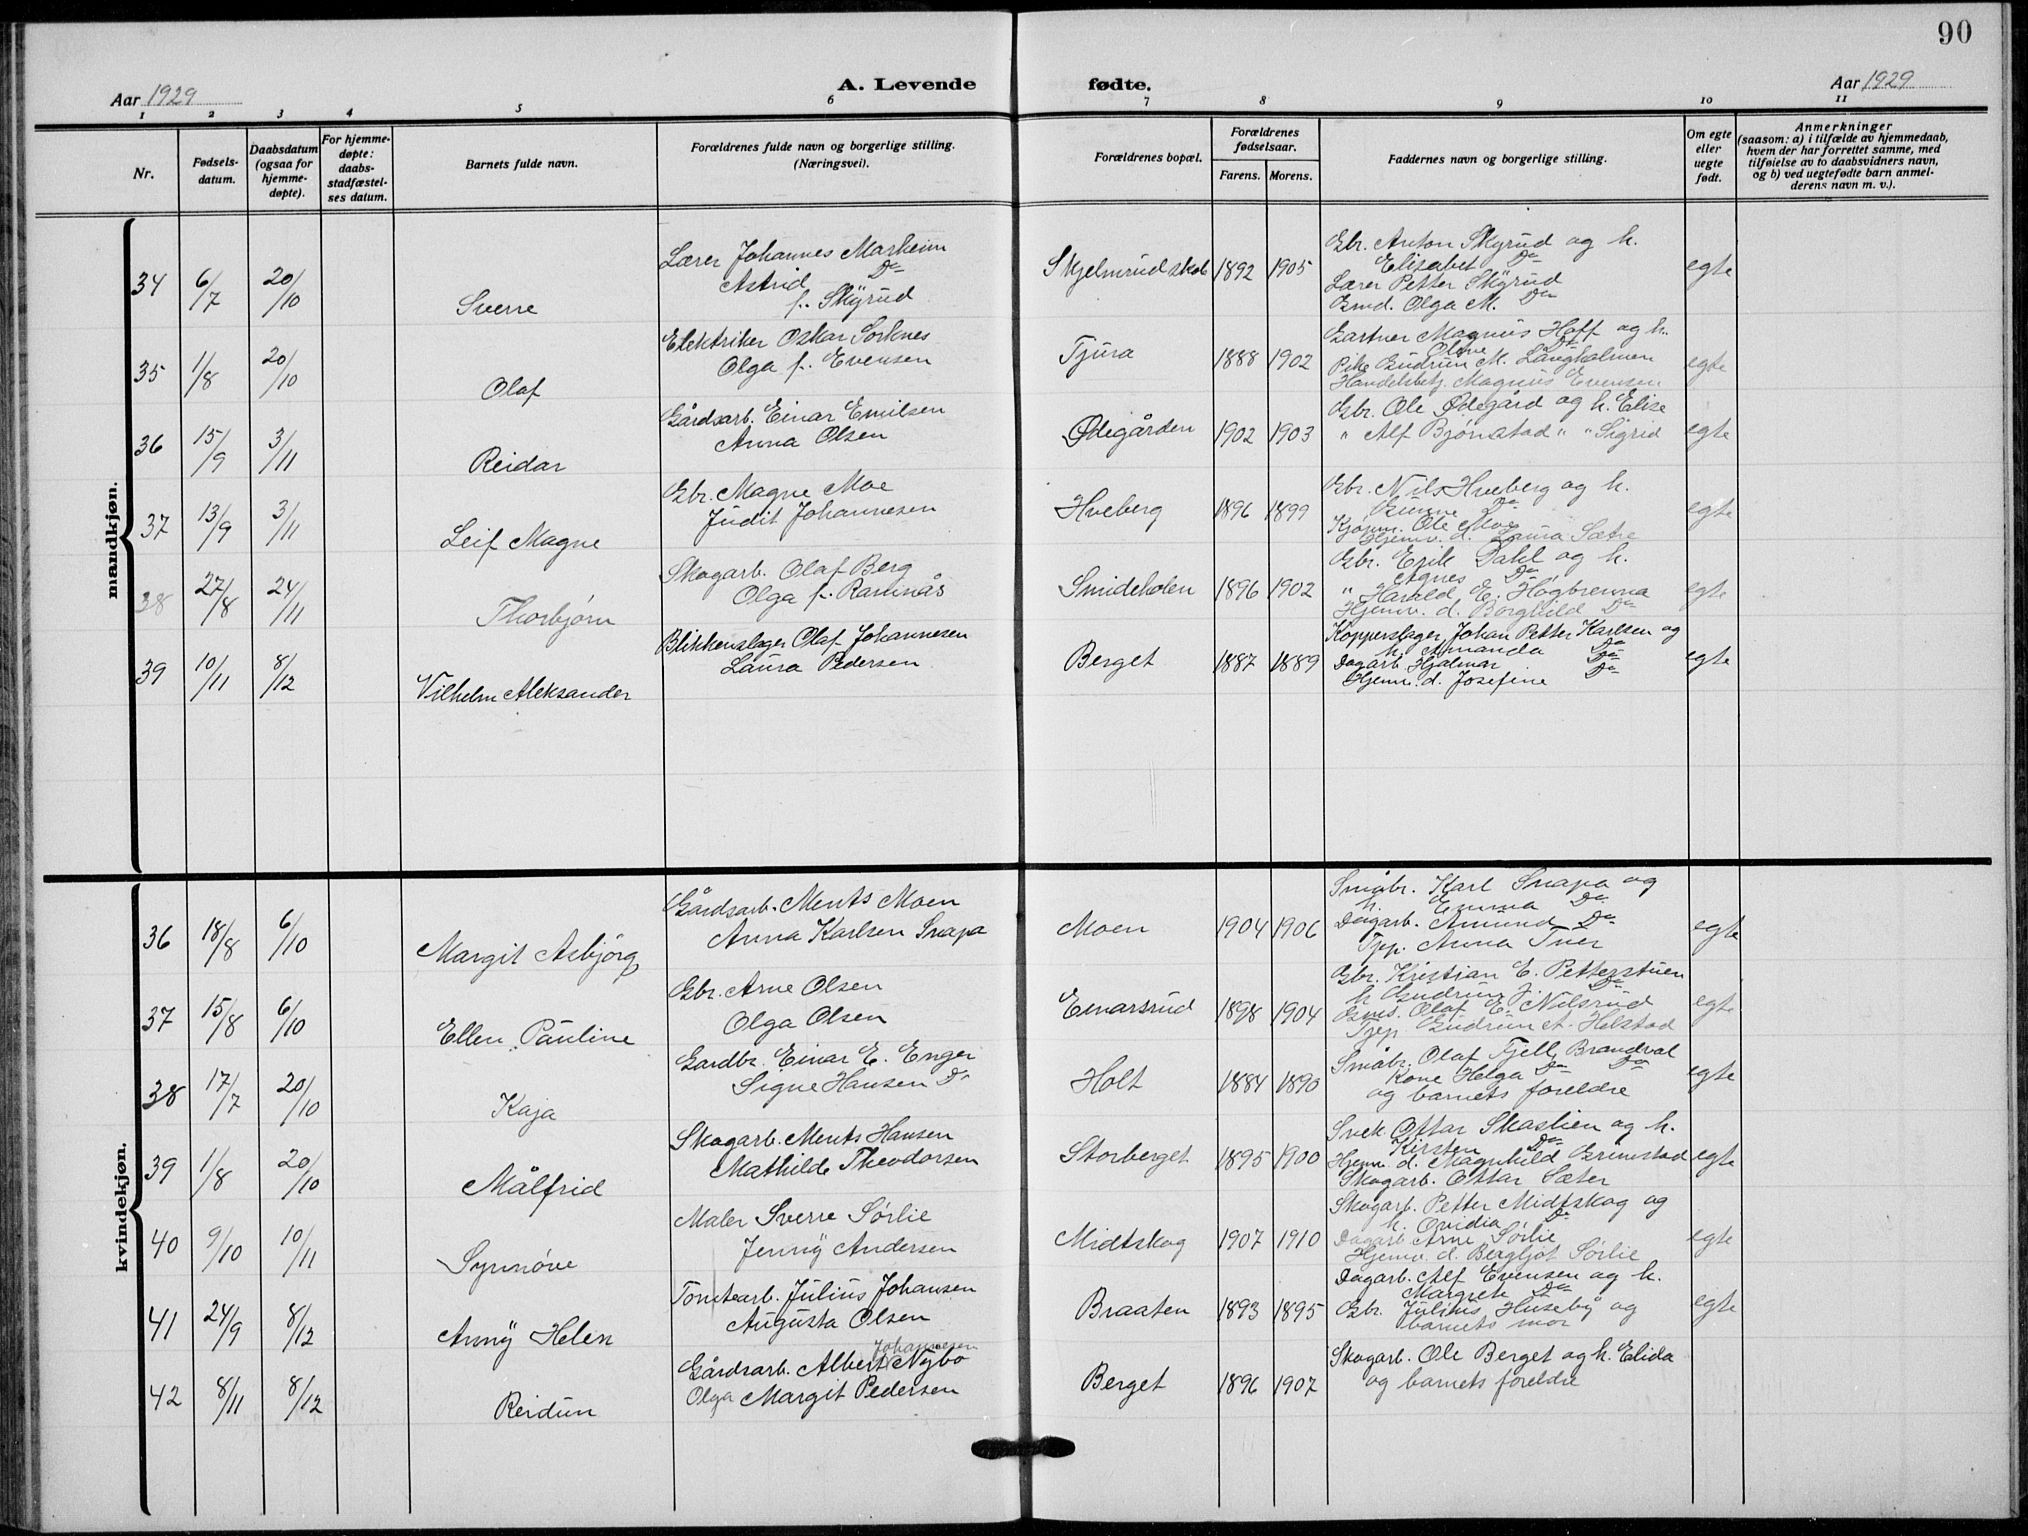 90
Aar 1929
A. Levende
fødte.
Aar 1929
1 2 3 4 5 6 7 8 9 10 11
Nr.
Fødsels-
datum.
Daabsdatum
(ogsaa for
hjemme-
døpte).
For hjemme-
døpte:
daabs-
stadfæstel-
ses datum.
Barnets fulde navn.
Forældrenes fulde navn og borgerlige stilling.
(Næringsvei).
Forældrenes bopæl.
Forældrenes
fødselsaar.
Farens. Morens.
Faddernes navn og borgerlige stilling.
Om egte
eller
uegte
født.
Anmerkninger
(saasom: a) i tilfælde av hjemmedaab,
hvem der har forrettet samme, med
tilføielse av to daabsvidners navn,
og b) ved uegtefødte barn anmel-
derens navn m. v.).
mandkjøn.
34 6/7 20/10 Sverre
Lærer Johannes Marheim
Astrid Do
f. Skyrud
Skjelmrud skole 1892 1905
Gbr. Anton Skyrud og h.
Elisabet Do
Lærer Petter Skyrud
Olga M. Do
egte
35 1/8 20/10 Olaf
Elektriker Oskar Sorknes
Olga f. Evensen
Tjura 1888 1902
Gartner Magnus Hoff og h.
Oline Do
Pike Gudrun M. Langholmen
Handelsbetj. Magnus Evensen
egte
36 15/9 3/11 Reidar
Gårdsarb. Einar Emilsen
Anna Olsen
Ødegården 1902 1903
Gbr. Ole Ødegård og h. Elise
" Alf Bjørnstad " " Sigrid
egte
37 13/9 3/11 Leif Magne
Gbr. Magne Moe
Judit Johannesen
Hveberg 1896 1899
Gbr. Nils Hveberg og h.
Do
Kjøpm. Ole Moe
Hjemv. d. Laura Sætre
egte
38 27/8 24/11 Thorbjørn
Skogarb. Olaf Berg
Olga f. Ramnås
Smideholen 1896 1902
Gbr. Erik Dahl og h.
Agnes Do
" Harald E. Høgbrenna
Hjemv. d. Borghild Do
egte
39 10/11 8/12 Vilhelm Aleksander
Blikkenslager Olaf Johannesen
Laura Pedersen
Berget 1887 1889
Kopperslager Johan Petter Karlsen og
h. Amanda Do
Dagarb. Hjalmar Do
Hjemv. d. Josefine Do
egte
kvindekjøn.
36 18/8 6/10 Margit Asbjørg
Gårdsarb. Ments Moen
Anna Karlsen Snapa
Moen 1904 1906
Småbr. Karl Snapa og
h. Emma Do
Dagarb. Amund Do
Tjep. Anna Tuer
egte
37 15/8 6/10 Ellen Pauline
Gbr. Arne Olsen
Olga Olsen
Einarsrud 1898 1904
Gbr. Kristian E. Petterstuen
h. Gudrun J. Do
Olaf E. Nilsrud
Tjep. Gudrun A. Helstad
egte
38 17/7 20/10 Kaja
Gardbr. Einar E. Enger
Signe Hansen Do
Holt 1884 1890
Småbr. Olaf Fjell, Brandval
Kone Helga Do Do
og barnets foreldre
egte
39 1/8 20/10 Målfrid
Skogarb. Ments Hansen
Mathilde Theodorsen
Storberget 1895 1900
Snek. Ottar Skaslien og h.
Kirsten Do
Hjemv. d. Magnhild Grimstad
Skogarb. Ottar Sæter
egte
40 9/10 10/11 Synnøve
Maler Sverre Sørlie
Jenny Andersen
Midtskog 1907 1910
Skogarb. Petter Midtskog og
h. Ovidia Do
Dagarb. Arne Sørlie
Hjemv. d. Bergljot Sørlie
egte
41 24/9 8/12 Anny Helen
Tomtearb. Julius Johansen
Augusta Olsen
Braaten 1893 1895
Dagarb. Alf Evensen og h.
Margrete Do
Gbr. Julius Huseby og
barnets mor
egte
42 8/11 8/12 Reidun
Johannesen
Gårdsarb. Albert Nybo
Olga Margit Pedersen
Berget 1896 1907
Skogarb. Ole Berget og h. Elida
og barnets foreldre